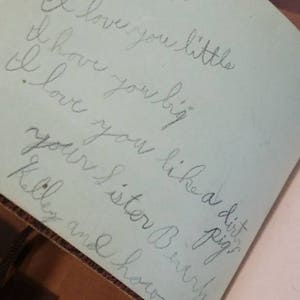 I love you little
I love you big
I love you like a dirty
pig.
your Sister
Kelley and how